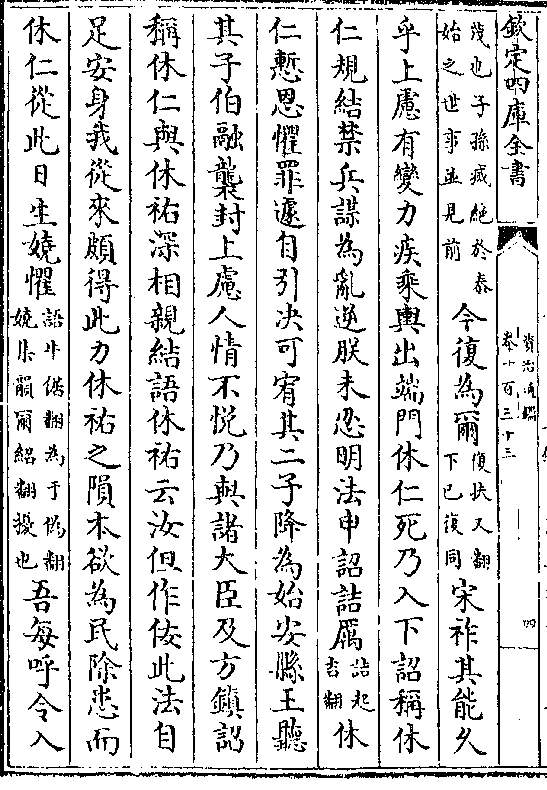 欽定四庫全書
資治通鑑
卷一百三十三
四
茂也子孫滅絶於泰
始之世事並見前
今復為爾
復扶又翻
下已復同
宋祚其能久
乎上慮有變力疾乘輿出端門休仁死乃入下詔稱休
仁規結禁兵謀為亂逆朕未忍明法申詔詰厲
詰起
吉翻
休
仁慙恩懼罪遽自引决可宥其二子降為始安縣王聽
其子伯融襲封上慮人情不悦乃與諸大臣及方鎮詔
稱休仁與休祐深相親結語休祐云汝但作佞此法自
足安身我從來頗得此力休祐之隕本欲為民除患而
休仁從此日生嬈懼
語牛倨翻為于偽翻
嬈集韻爾紹翻擾也
吾每呼令入